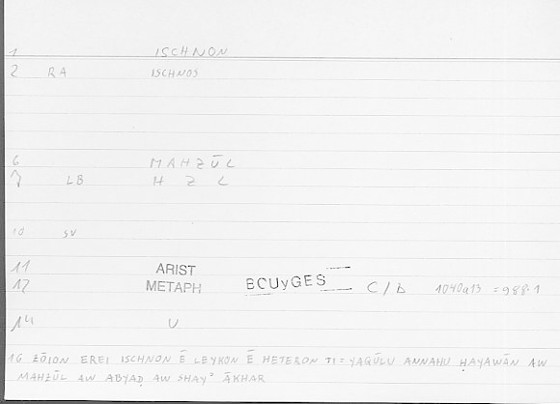 1 ISCHNON
2 RA ISCHNOS
6 MAHZŪL
7 LB H Z L
10 SV
11 ARIST
12 METAPH BCUyGES C/b 1040a13 =988.1
14 V
16 ZŌION EREI ISCHNON Ē LEYKON Ē HETERON TI = YAQŪLU ANNAHU ḤAYAWĀN AW
MAHZŪL AW ABYAḌ AW SHAYʾ ĀKHAR